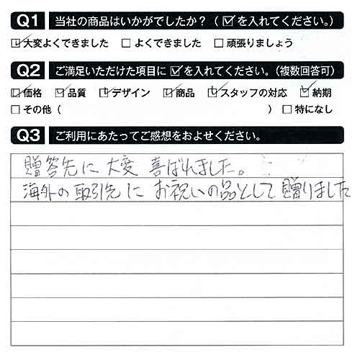 Q1 当社の商品はいかがでしたか?(☑を入れてください。)
☑大変よくできました □よくできました □頑張りましょう
Q2 ご満足いただけた項目に☑を入れてください。(複数回答可)
☑価格 ☑品質 ☑デザイン ☑商品 ☑スタッフの対応 ☑納期
□その他( ) □特になし
Q3 ご利用にあたってご感想をおよせください。
贈答先に大変喜ばれました。
海外の取引先にお祝いの品として贈りました